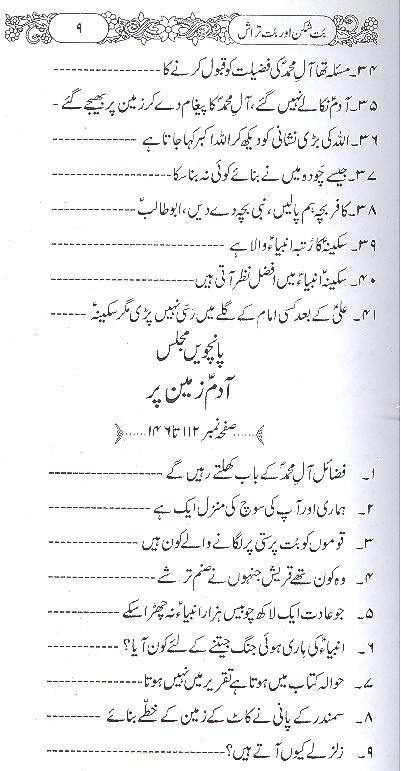 بت شکن اور بت تراش
۹
۳۴۔ مسئلہ تھا آلِ محمدؐ کی فضیلت کو قبول کرنے کا
۳۵۔ آدمؑ نکالے نہیں گئے، آلِ محمدؐ کا پیغام دے کر زمین پر بھیجے گئے
۳۶۔ اللہ کی بڑی نشانی کو دیکھ کر اللہ اکبر کہا جاتا ہے
۳۷۔ جیسے چودہ میں نے بنائے کوئی نہ بنا سکا
۳۸۔ کافر بچہ ہم پالیں، نبی بچہ دے دیں، ابو طالبؑ
۳۹۔ سکینہؑ کا رتبہ انبیاءؑ والا ہے
۴۰۔ سکینہؑ انبیاءؑ میں افضل نظر آتی ہیں
۴۱۔ علیؑ کے بعد کسی امام کے گلے میں رسّی نہیں پڑی مگر سکینہؑ
پانچویں مجلس
آدمؑ زمین پر
صفحہ نمبر ۱۱۲ تا ۱۴۶
۱۔ فضائل آلِ محمدؐ کے باب کھلتے رہیں گے
۲۔ ہماری اور آپ کی سوچ کی منزل ایک ہے
۳۔ قوموں کو بُت پرستی پر لگانے والے کون ہیں
۴۔ وہ کون تھے قریش جنہوں نے صنم تراشے
۵۔ جو عادت ایک لاکھ چوبیس ہزار انبیاءؑ نہ چھڑا سکے
۶۔ انبیاءؑ کی ہاری ہوئی جنگ جیتنے کے لئے کون آیا؟
۷۔ حوالہ کتاب میں ہوتا ہے تقریر میں نہیں ہوتا
۸۔ سمندر کے پانی نے کاٹ کے زمین کے خطّے بنائے
۹۔ زلزلے کیوں آتے ہیں؟